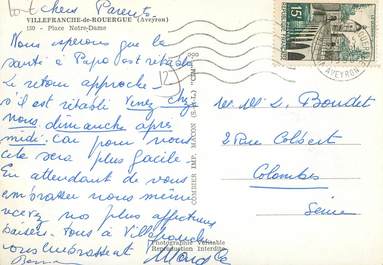 chers Parents
VILLEFRANCHE-de-ROUERGUE (Aveyron)
150 - Place Notre-Dame
Nous esperons que la
santé à Papa s'est rétabli
Le retour approche
s'il est rétabli Venez chez
nous dimanche après
midi. Car pour nous
cela sera plus facile.
En attendant de vous
embrasser nous même
recevez nos plus affectueux
baisers. tous à Villefranche
vous embrassent
COMBIER IMP. MACON (S.-&-L.)
Photographie Véritable
Reproduction Interdite
15F
AVEYRON
M. Mme L. Boudet
2 Rue Colbert
Colombes
Seine